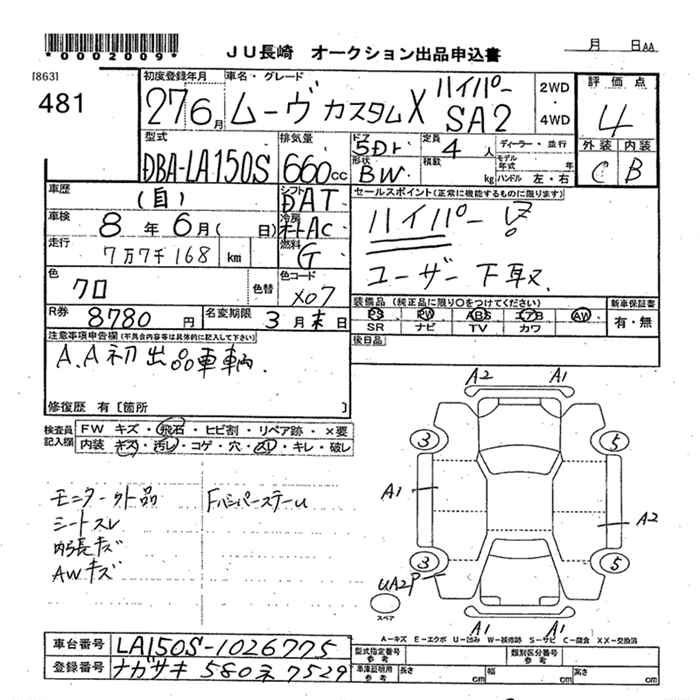 *0002009*
JU長崎 オークション出品申込書
月 日AA
[863]
481
初度登録年月 車名・グレード 評価点
27 6月 ムーヴ カスタムX ハイパー SA2 2WD・4WD 4
型式 排気量 ドア 定員 ディーラー・並行 外装 内装
DBA-LA150S 660cc 5Dr 4人 C B
形状 積載 モデル年式 年
BW kg ハンドル 左・右
車歴 (自) シフト DAT セールスポイント(正常に機能するものに限ります)
車検 8年 6月( 日) 冷房 オートAC ハイパー
走行 7万7千168 km 燃料 G
色 クロ 色替 色コード X07 ユーザー下取.
R券 8780円 名変期限 3月末日
装備品(純正品に限り○をつけてください) 新車保証書
PS PW ABS エアB AW 有・無
SR ナビ TV カワ
注意事項申告欄(不具合内容等は具体的に記入して下さい) 後日品
A.A初出品車輌.
修復歴 有[箇所 ]
検査員記入欄 FW キズ・飛石・ヒビ割・リペア跡・×要
内装 キズ・汚レ・コゲ・穴・スレ・キレ・破レ
モニター外品 FバンパーステーU
シートスレ
内張キズ
AWキズ
A2 A1
3 5
A1 A2
3 5
UA2P
スペア
A1 A1
A-キズ E-エクボ U-凹み W-補修跡 S-サビ C-腐食 XX-交換済
車台番号 LA150S-1026775 型式指定番号 参考 類別区分番号 参考
登録番号 ナガサキ 580 ネ 7529 車庫証明用 参考 長さ cm 幅 cm 高さ cm